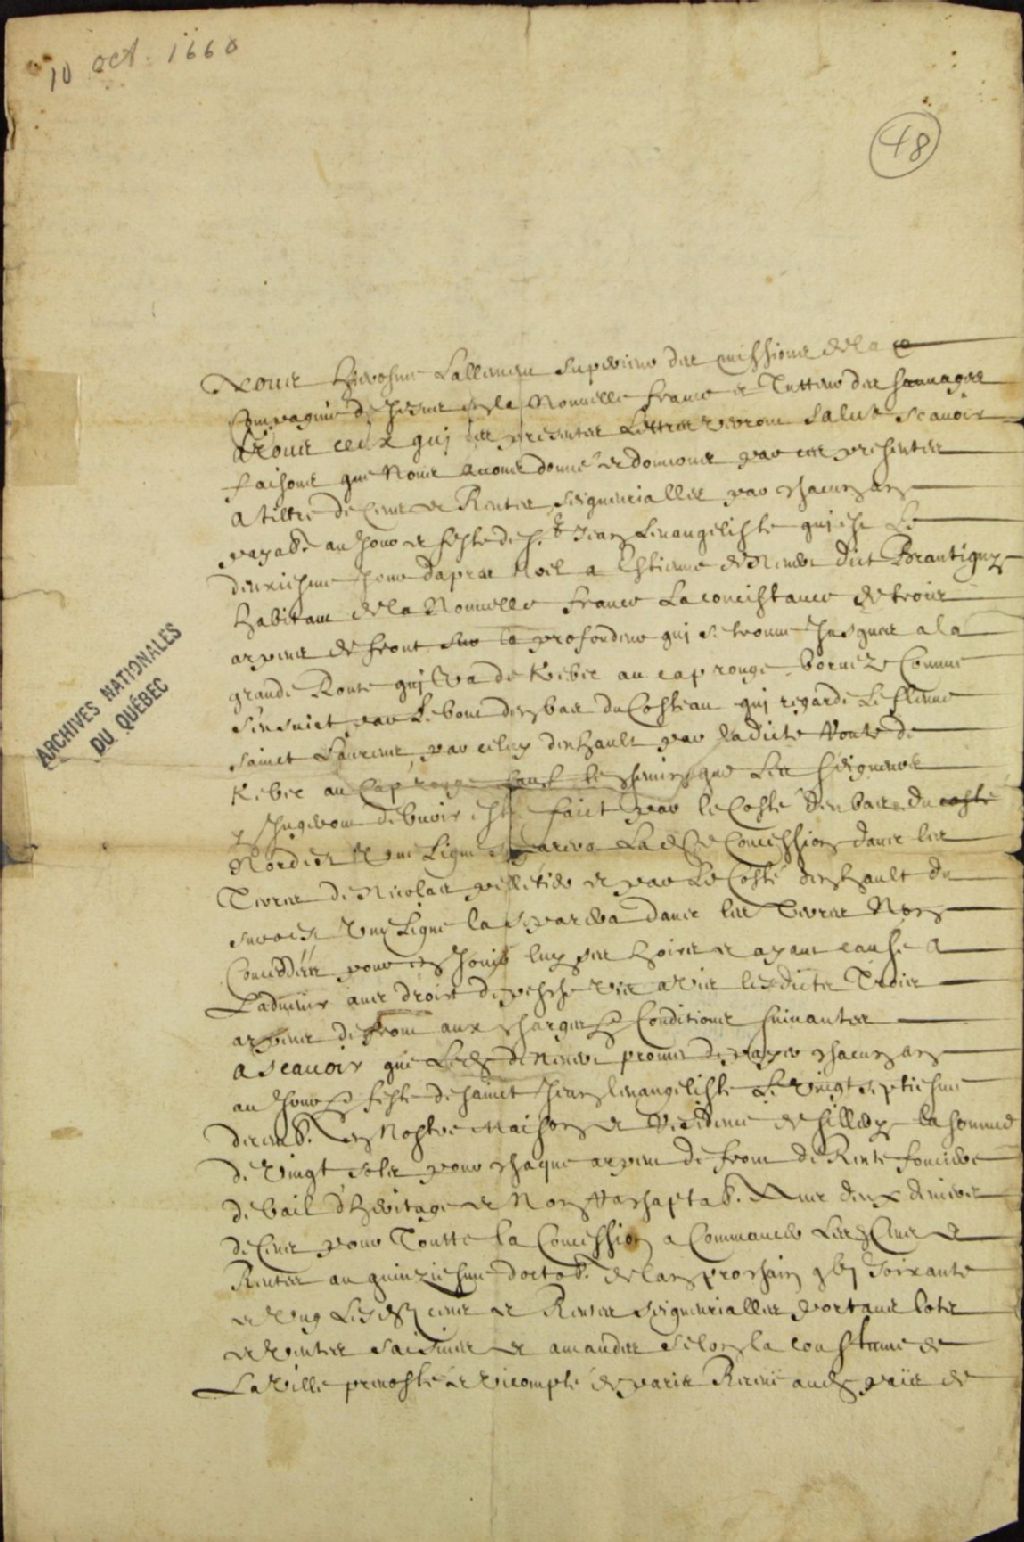 10 oct. 1660
48
Nous Hierosme Lallemen Superieur des missions de la
Compagnie de Jesus en la Nouvelle france et Tutteur des sauuages
A tous ceux qui ces presentes Lettres verront Salut Scauoir
faisons que Nous auons donné et donnons par ces presentes
A tiltre de Cens et Rentes seigneurialles par chacun an
payab. au Jour et feste de St Jean Leuangeliste qui est le
deuxiesme Jour dapres Noel a Estienne de Neuers dict Brantigny
habitant de la Nouuelle france La concistance de trois
arpens de front sur la profondeur qui se trouue Jusques a la
grande Route qui va de Kebec au cap rouge bornez Comme
s'ensuict par le bout den bas du Costeau qui regarde Le fleuue
sainct Laurens, par celuy denhault par ladicte Route de
Kebec au Cap rouge sauf le chemin que Les seigneurs
y Jugeront debuoir estre faict par le Costé den bas du costé
Nordest Une Ligne separera Lade Concession dauec les
Terres de Nicolas pelletier et par Le Costé denhault du
suroest Une Ligne la separera dauec les Terres Non
Conceddées pour en Jouir luy ses hoires et ayans cause A
Laduenir auec droict de pesche vis a vis lesdictes Trois
arpens de front aux charges et Conditions suiuantes
A Scauoir que Led. de Neuers promet de payer chacun an
au Jour et feste de sainct Jean leuangeliste Le vingt septiesme
decemb. En Nostre Maison et Residence de sillery la somme
de vingt solz pour chaque arpent de front de Rente fonciere
de bail d'heritage et Non Rachaptab. Auec deux deniers
de Cens pour Toutte la Concession a Commancer Lesd. Cens et
Rentes au quinziesme doctob. de lan prochain gbj Soixante
et Ung Lesd. cens et Rentes seigneurialles portans lotz
et ventes saisines et amandes selon la coustume de
La Ville preuosté et vicompté de paris Receue aud. païs de
ARCHIVES NATIONALES
DU QUÉBEC